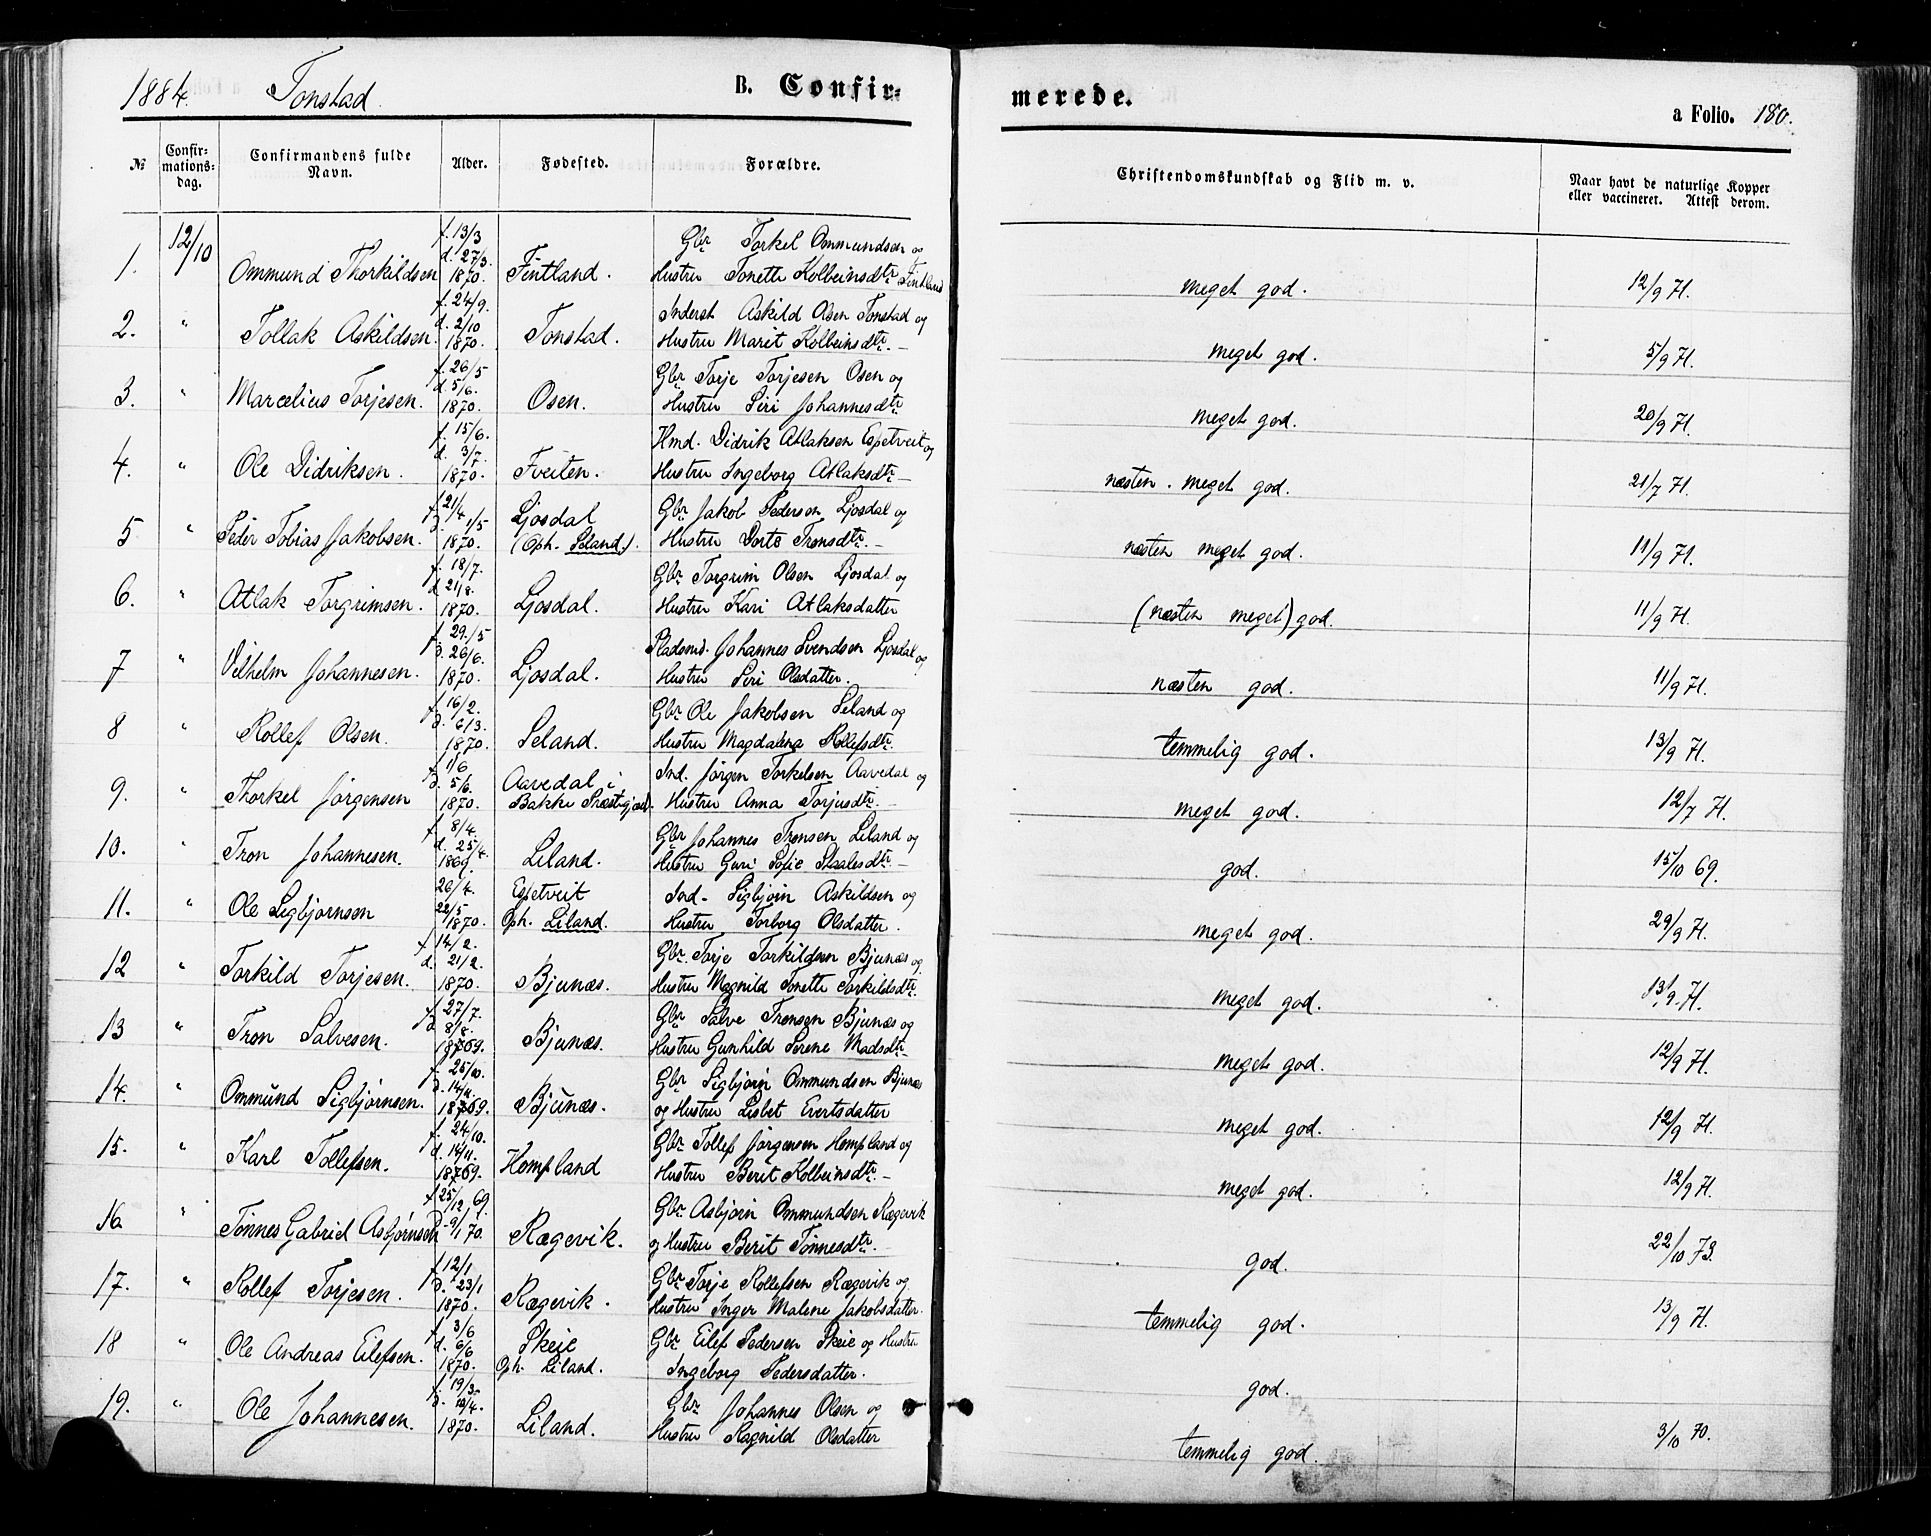 1884. Tonstad.
B. Confir=
merede.
a Folio. 180.
№ Confir=mations=dag. Confirmandens fulde Navn. Alder. Fødested. Forældre. Christendomskundskab og Flid m. v. Naar havt de naturlige Kopper eller vaccineret. Attest derom.
1. 12/10 Ommund Thorkildsen f. 13/3 d. 27/3. 1870. Fintland. Gbr Torkel Ommundsen og Hustru Tonette Kolbeinsdtr Fintland meget god. 12/9 71.
2. " Tollak Askildsen. f. 24/9. d. 2/10 1870. Tonstad. Inderst Askild Olsen Tonstad og Hustru Marit Kolbeinsdtr.— meget god. 5/9 71.
3. " Marcelius Torjesen. f. 26/5 d. 5/6. 1870. Osen. Gbr Torje Torjesen Osen og Hustru Siri Johannesdtr meget god. 20/9 71.
4. " Ole Didriksen. f. 15/6. d. 3/7. 1870. Tveiten. Hmd. Didrik Atlaksen Espetveit og Hustru Ingeborg Atlaksdtr— næsten meget god. 21/7 71.
5 " Peder Tobias Jakobsen. f. 21/4 d. 1/5 1870. Ljosdal (Oph. Seland.). Gbr Jakob Pedersen Ljosdal og Hustru Dorte Tronsdtr.— næsten meget god. 11/9 71.
6. " Atlak Torgrimsen. f. 18/7. d. 21/8. 1870. Ljosdal. Gbr Torgrim Olsen Ljosdal og Hustru Kari Atlaksdatter (næsten meget) god. 11/9 71.
7 " Vilhelm Johannesen. f. 29./5 d. 26/6. 1870. Ljosdal. Pladsmd. Johannes Svendsen Ljosdal og Hustru Siri Olsdatter. næsten god. 11/9 71.
8 " Rollef Olsen. f. 16/2. d. 6/3. 1870. Seland. Gbr Ole Jakobsen Seland og Hustru Magdalena Rollefsdtr. temmelig god. 13/9 71.
9. " Thorkel Jørgensen f. 1/6 d. 5/6. 1870. Aavedal i Bakke Præstegjæld. Ind. Jørgen Torkelsen Aavedal og Hustru Anna Torjusdtr.— meget god. 12/7 71.
10. " Tron Johannesen. f. 8/4. d. 25/4. 1869. Liland. Gbr Johannes Tronsen Liland og Hustru Guri Sofie Staalesdtr.— god. 15/10 69.
11. " Ole Sigbjørnsen 26/4. 22/5 1870. Espetveit Oph. Liland. Ind- Sigbjørn Askildsen og Hustru Torborg Olsdatter. meget god. 29/9 71.
12 " Torkild Torjesen. f. 14/2. d. 21/2. 1870. Bjunæs. Gbr. Torje Torkildsen Bjunæs og Hustru Magnild Tonette Torkildsdtr. meget god. 13/9. 71.
13 " Tron Salvesen. f. 27/7. d. 8/8. 1869. Bjunæs. Gbr Salve Tronsen Bjunæs og Hustru Gunhild Serene Madsdtr— meget god. 12/9 71.
14. " Ommund Sigbjørnsen. f. 25/10. d. 14/11. 1869. Bjunæs. Gbr Sigbjørn Ommundsen Bjunæs og Hustru Lisbet Evertsdatter meget god. 12/9 71.
15. " Karl Tollefsen. f. 24/10. d. 14/11. 1869. Hompland Gbr Tollef Jørgensen Hompland og Hustru Berit Kolbeinsdtr.— meget god. 12/9 71.
16. " Tønnes Gabriel Asbjørnsen f. 25/12 69. d. 9/1 70. Rægevik. Gbr. Asbjørn Ommundsen Rægevik og Hustru Berit Tønnesdtr.— god. 22/10 73.
17. " Rollef Torjesen. f. 12/1 d. 23/1 1870. Rægevik. Gbr Torje Rollefsen Rægevik og Hustru Inger Malene Jakobsdatter. temmelig god. 13/9 71.
18 " Ole Andreas Eilefsen. f. 3/6 d. 6/6 1870. Skeie Oph. Liland. Gbr Eilef Pedersen Skeie og Hustru Ingeborg Pedersdatter. god.
19. " Ole Johannesen. f. 19/3. d. 10/4. 1870. Liland. Gbr Johannes Olsen og Hustru Ragnild Olsdatter temmelig god. 3/10 70.